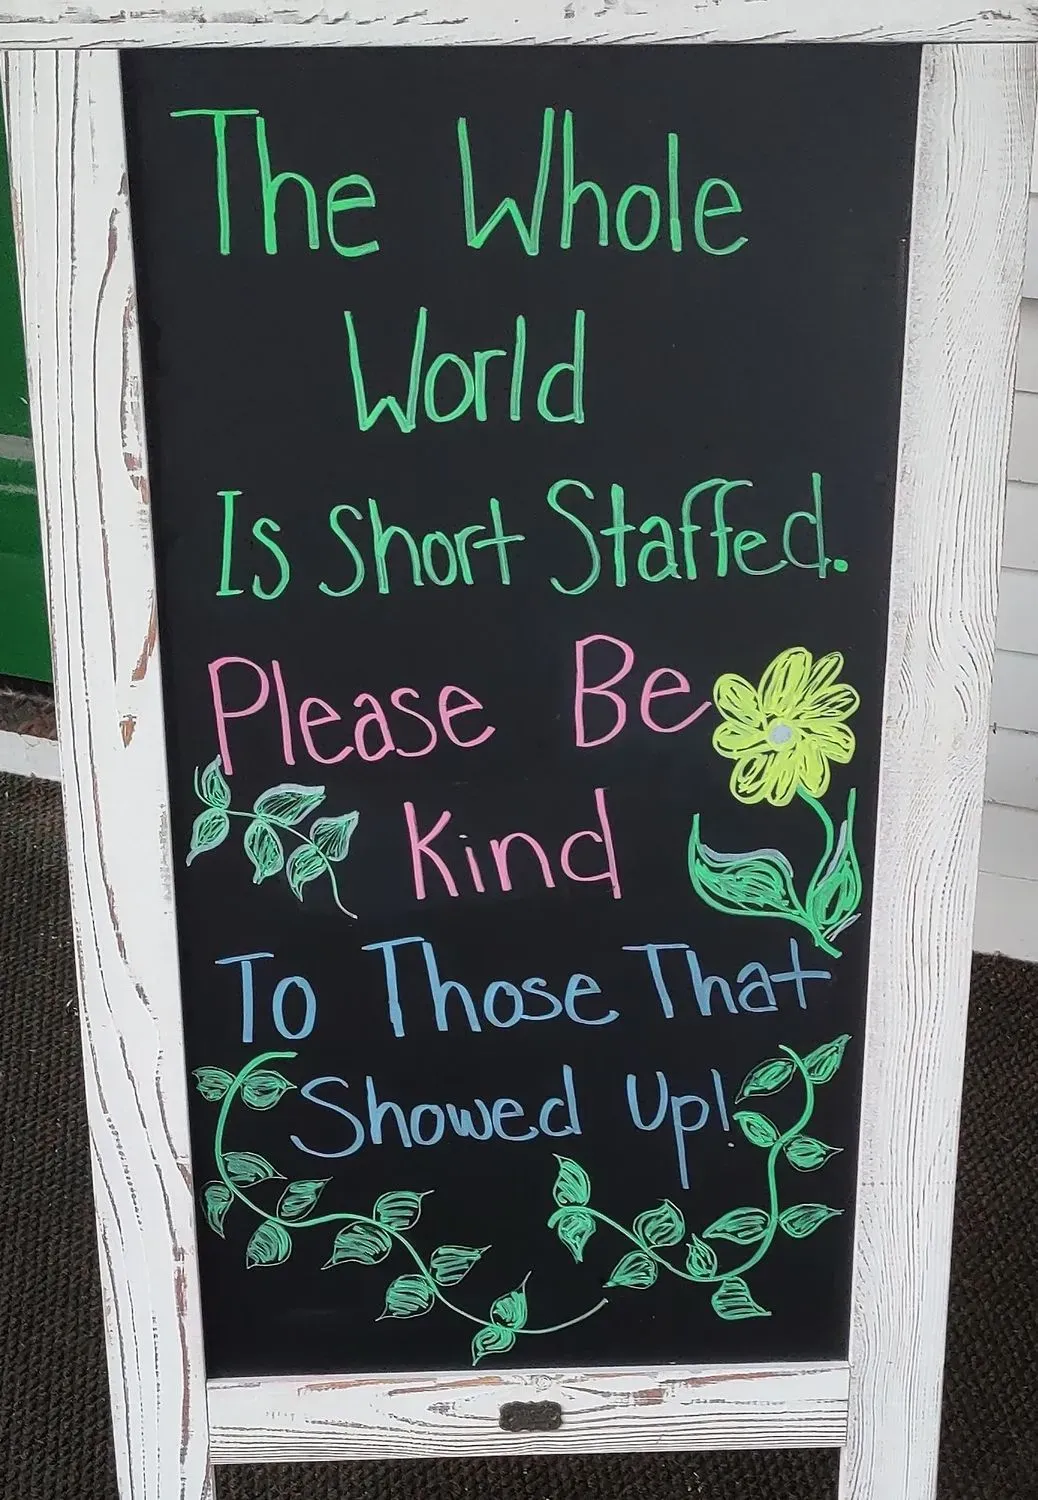 The Whole
World
Is Short Staffed.
Please Be
Kind
To Those That
Showed Up!